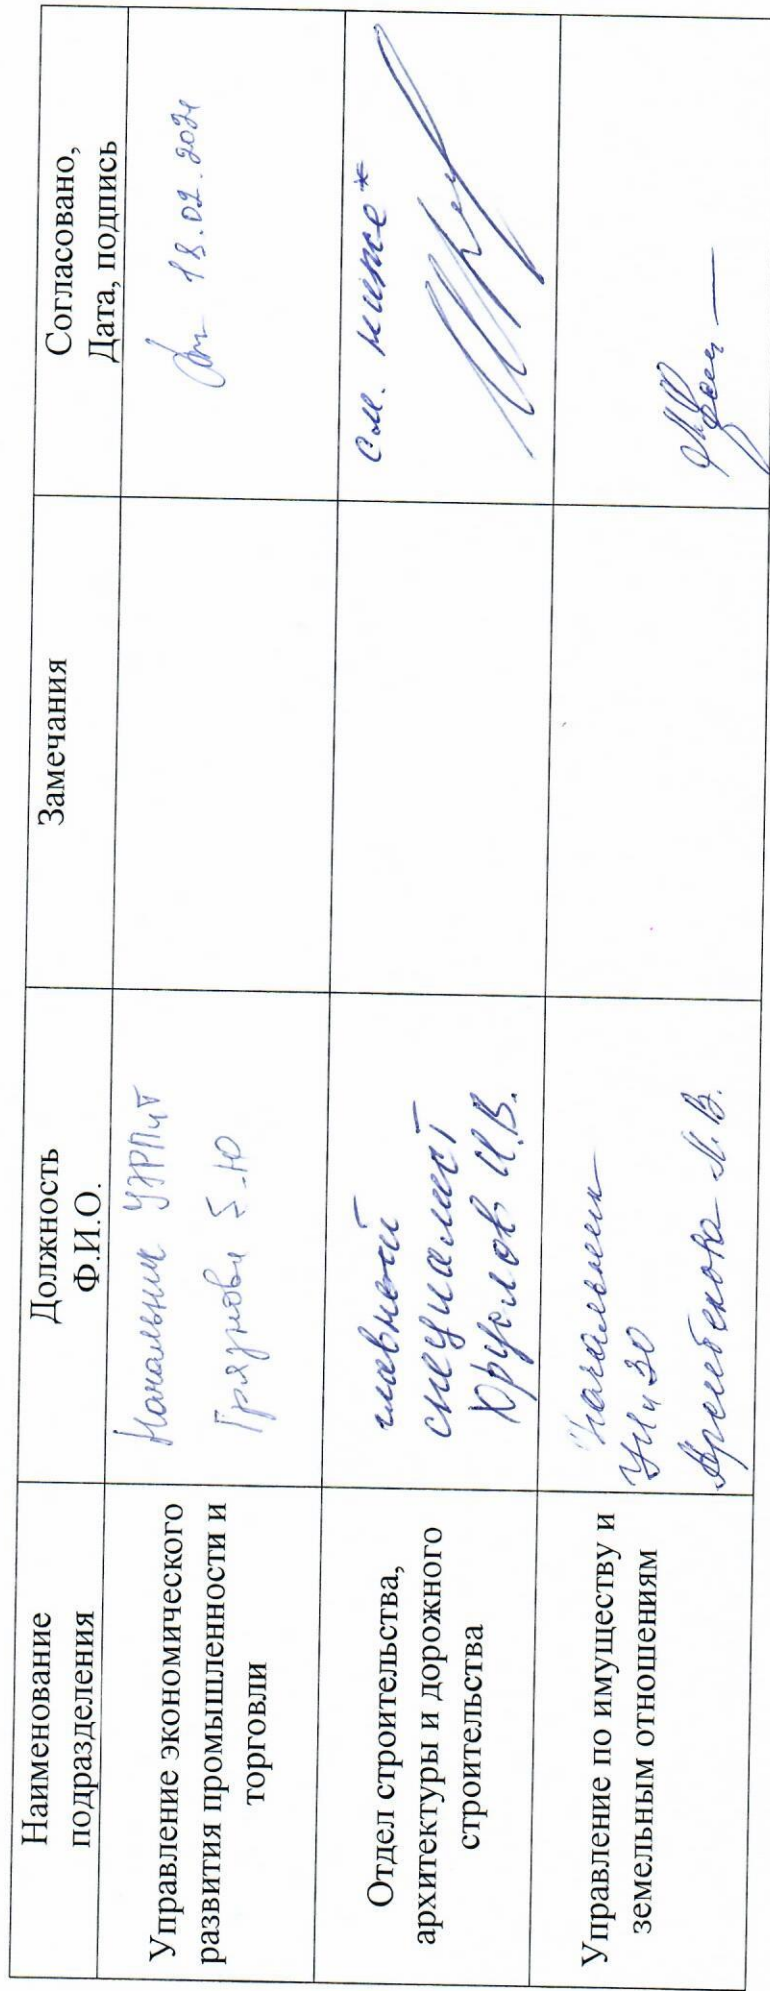 Наименование
подразделения
Должность
Ф.И.О.
Замечания
Согласовано,
Дата, подпись
Управление экономического
развития промышленности и
торговли
Начальник УЭРПиТ
Грязнова Б.Ю
18.02.2021
Отдел строительства,
архитектуры и дорожного
строительства
главный
специалист
И.В.
см. ниже*
Управление по имуществу и
земельным отношениям
Начальник
УИиЗО
Л.В.